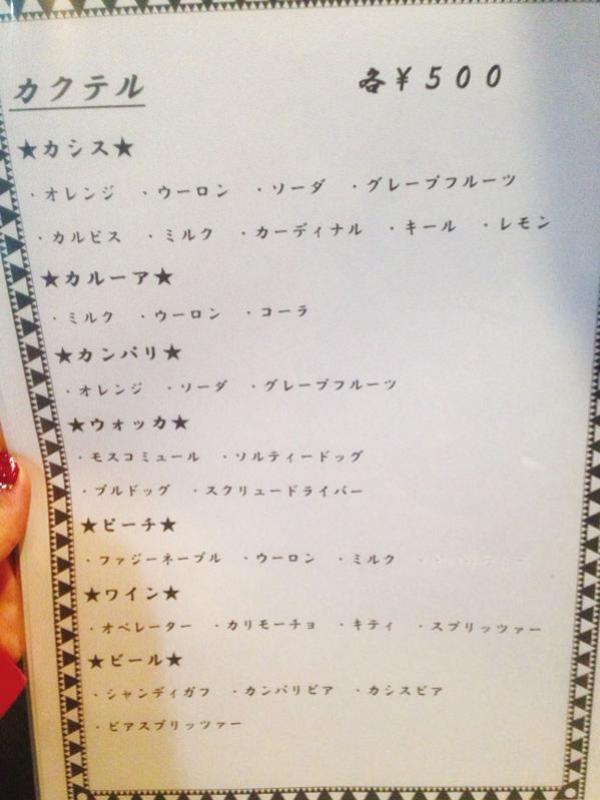 カクテル 各¥500
★カシス★
・オレンジ ・ウーロン ・ソーダ ・グレープフルーツ
・カルピス ・ミルク ・カーディナル ・キール ・レモン
★カルーア★
・ミルク ・ウーロン ・コーラ
★カンパリ★
・オレンジ ・ソーダ ・グレープフルーツ
★ウォッカ★
・モスコミュール ・ソルティードッグ
・ブルドッグ ・スクリュードライバー
★ピーチ★
・ファジーネーブル ・ウーロン ・ミルク
★ワイン★
・オペレーター ・カリモーチョ ・キティ ・スプリッツァー
★ビール★
・シャンディガフ ・カンパリビア ・カシスビア
・ビアスプリッツァー